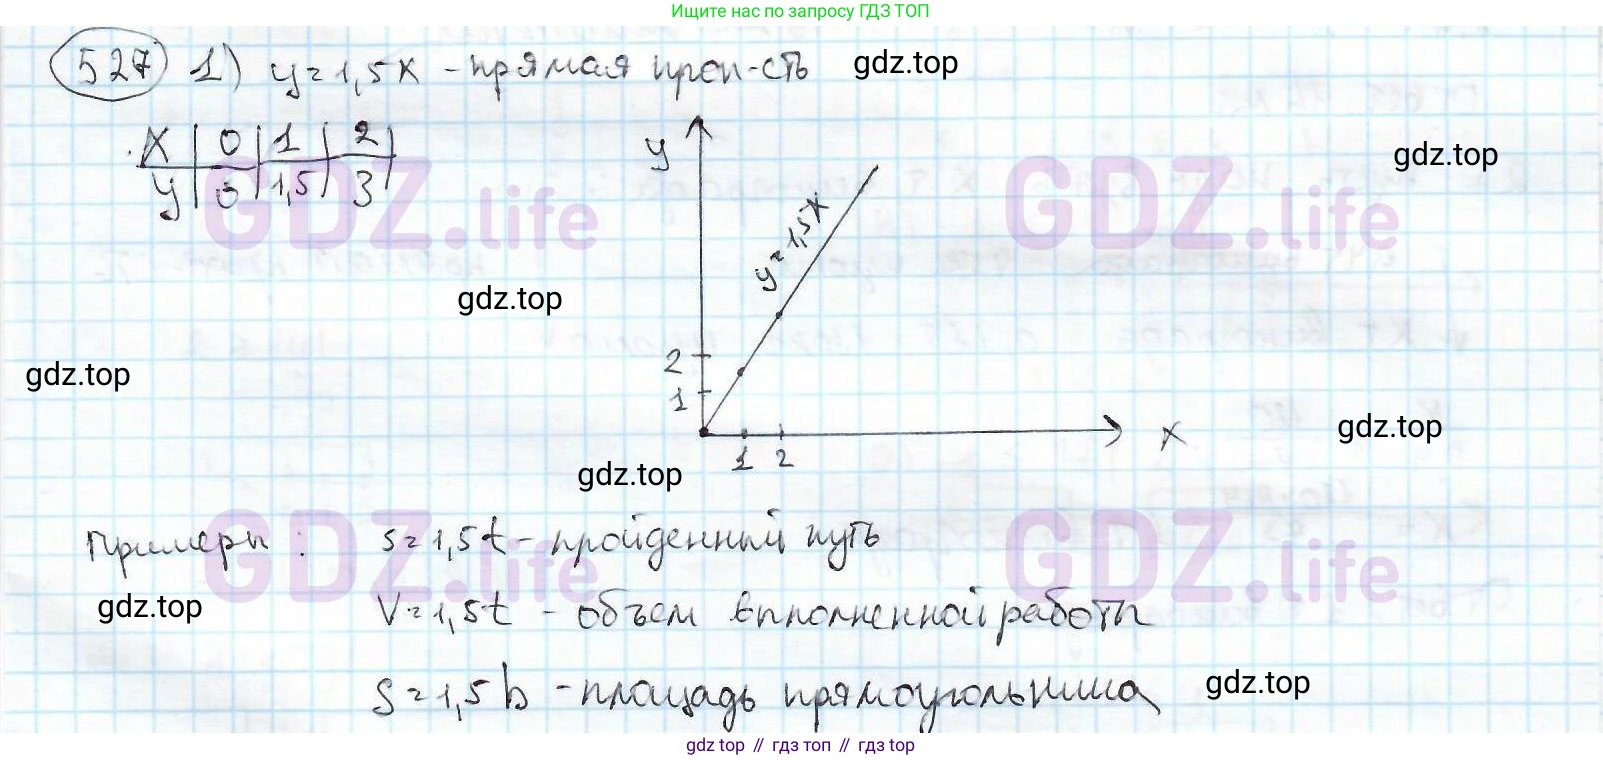 Ищите нас по запросу ГДЗ ТОП
527 1) y = 1,5x - прямая проп-сть
gdz.top
x | 0 | 1 | 2 |
y | 0 | 1,5 | 3 |
y
gdz.top
GDZ.life
GDZ.life
y = 1,5x
gdz.top
2
gdz.top
1
gdz.top
x
1 2
gdz.top
Примеры : s = 1,5t - пройденный путь
GDZ.life
GDZ.life
gdz.top
V = 1,5t - объем выполненной работы
S = 1,5b - площадь прямоугольника
gdz.top
gdz top // гдз топ // gdz top